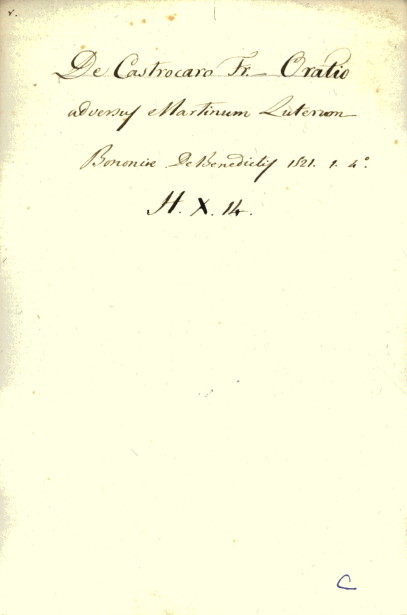 v.
De Castrocaro Fr. Oratio
adversus Martinum Luterum
Bononiae De Benedictis 1521. 1. 4º.
H. X. 14.
C